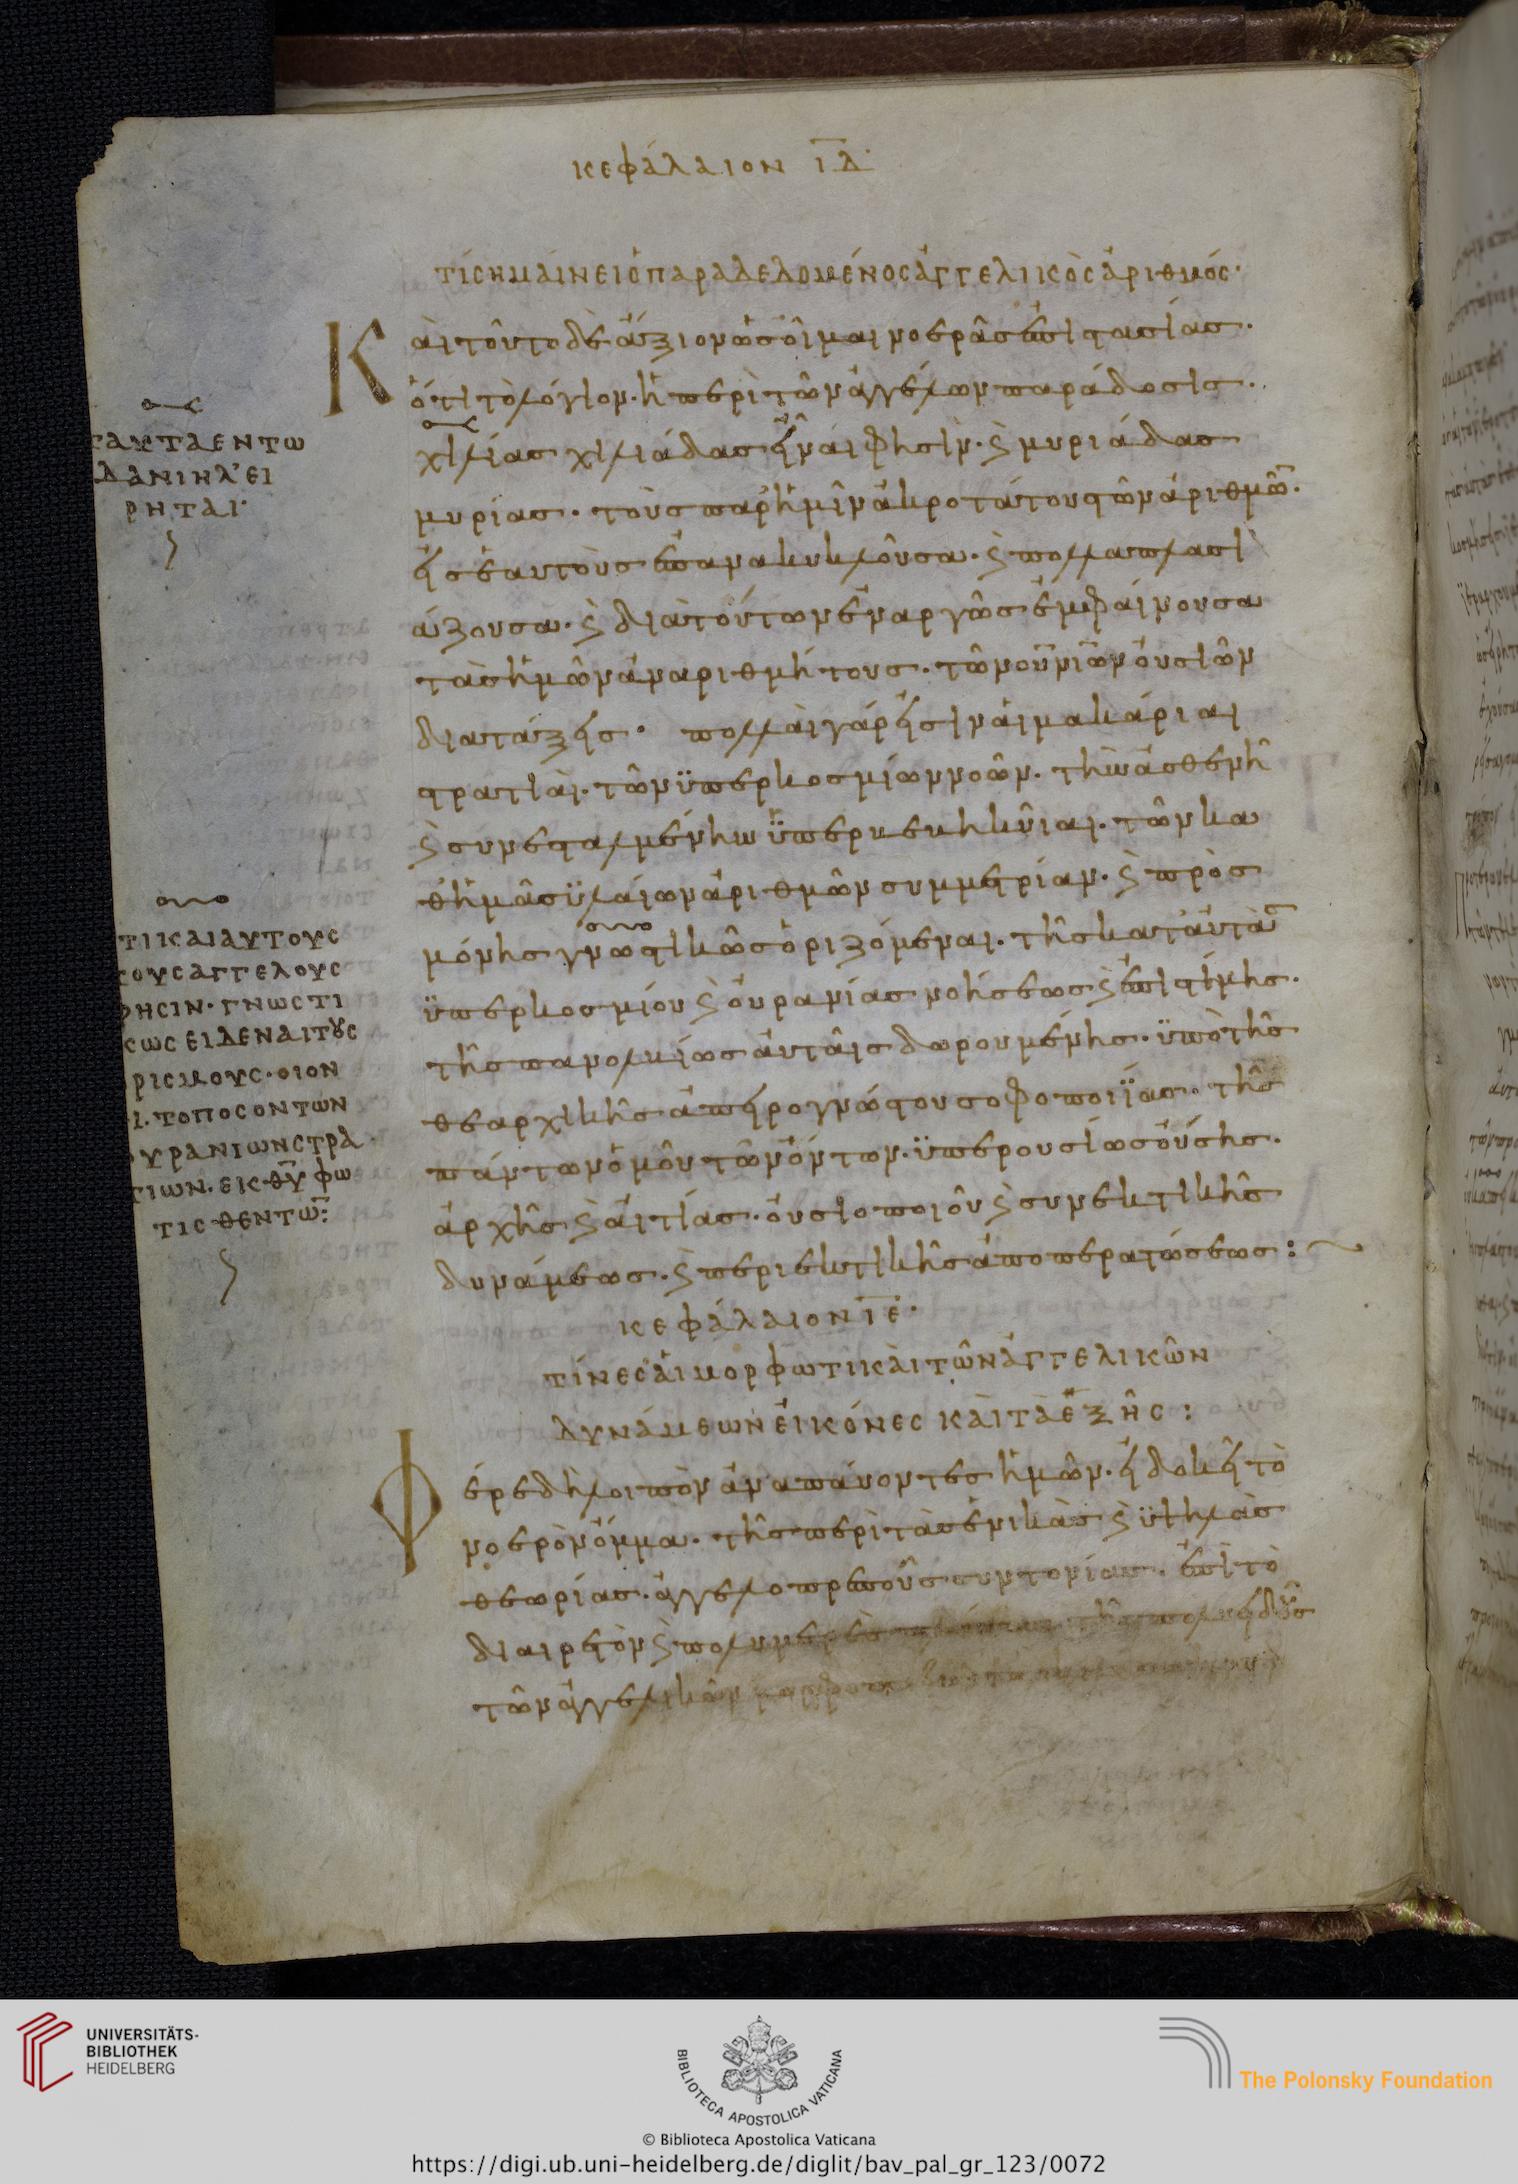 κεφάλαιον ΙΔ·
τί σημαίνει ὁ παραδεδομένος ἀγγελικὸς ἀριθμός·
Καὶ τοῦτο δὲ ἄξιον ὡς οἶμαι νοερᾶς ἐπιστασίας·
ὅτι τὸ λόγιον· ἡ περὶ τῶν ἀγγέλων παράδοσις·
χιλίας χιλιάδας εἶναί φησιν· ϗ μυριάδας
μυρίας· τοὺς παρ' ἡμῖν ἀκροτάτους τῶν ἀριθμῶ̅·
εἰς ἑαυτοὺς ἐπανακυκλοῦσα· ϗ πολλαπλασι
άζουσα· ϗ διὰ τούτων ἐναργῶς ἐμφαίνουσα
τὰς ἡμῶν ἀναριθμήτους· τῶν οὐ̅νίων οὐσιῶν
διατάξεις· πολλαὶ γάρ εἰσιν αἱ μακάριαι
στρατιαὶ· τῶν ὑπερκοσμίων νοῶν· τὴν ἀσθενῆ
ϗ συνεσταλμένην ὑπερνενηκυῖαι· τῶν κα
θ' ἡμᾶς ὑλαίων ἀριθμῶν συμμετρίαν· ϗ πρὸς
μόνης γνωστικῶς ὁριζόμεναι· τῆς κατ' αὐτὰ̅
ὑπερκοσμίου ϗ οὐρανίας νοήσεως ϗ ἐπιστήμης·
τῆς πανολκίως αὐταῖς δωρουμένης· ὑπὸ τῆς
θεαρχικῆς ἀπειρογνώστου σοφοποιΐας· τῆς
πάντων ὁμοῦ τῶν ὄντων· ὑπερουσίως οὔσης·
ἀρχῆς ϗ αἰτίας· οὐσιοποιοῦ ϗ συνεκτικῆς
δυνάμεως· ϗ περιεκτικῆς ἀποπερατώσεως:
κεφάλαιον ΙΕ·
τίνες αἱ μορφωτικαὶ τῶν ἀγγελικῶν
δυνάμεων εἰκόνες καὶ τὰ ἑξῆς:
Φέρε δὴ λοιπὸν ἀναπαύοντες ἡμῶν· εἰ δοκεῖ τὸ
νοερὸν ὄμμα· τῆς περὶ τὰς ἑνικὰς ϗ ὑψηλὰς
θεωρίας· ἀγγελοπρεποῦς συντονίας· ἐπὶ τὸ
διαιρετὸν ϗ πολυμερὲς πλάτος τῆς πολυειδοῦς
τῶν ἀγγελικῶν
ταυτα εν τω
Δανιηλ ει
ρηται·
τι και αυτους
τους αγγελους
φησιν· γνωστι
κως ειδεναι τους
ορισμους· οιον
τοπος οντων
ουρανιων στρα
τιων· εις θυ̅ φω
τισθεντω̅:
UNIVERSITÄTS-
BIBLIOTHEK
HEIDELBERG
BIBLIOTECA APOSTOLICA VATICANA
The Polonsky Foundation
© Biblioteca Apostolica Vaticana
https://digi.ub.uni-heidelberg.de/diglit/bav_pal_gr_123/0072